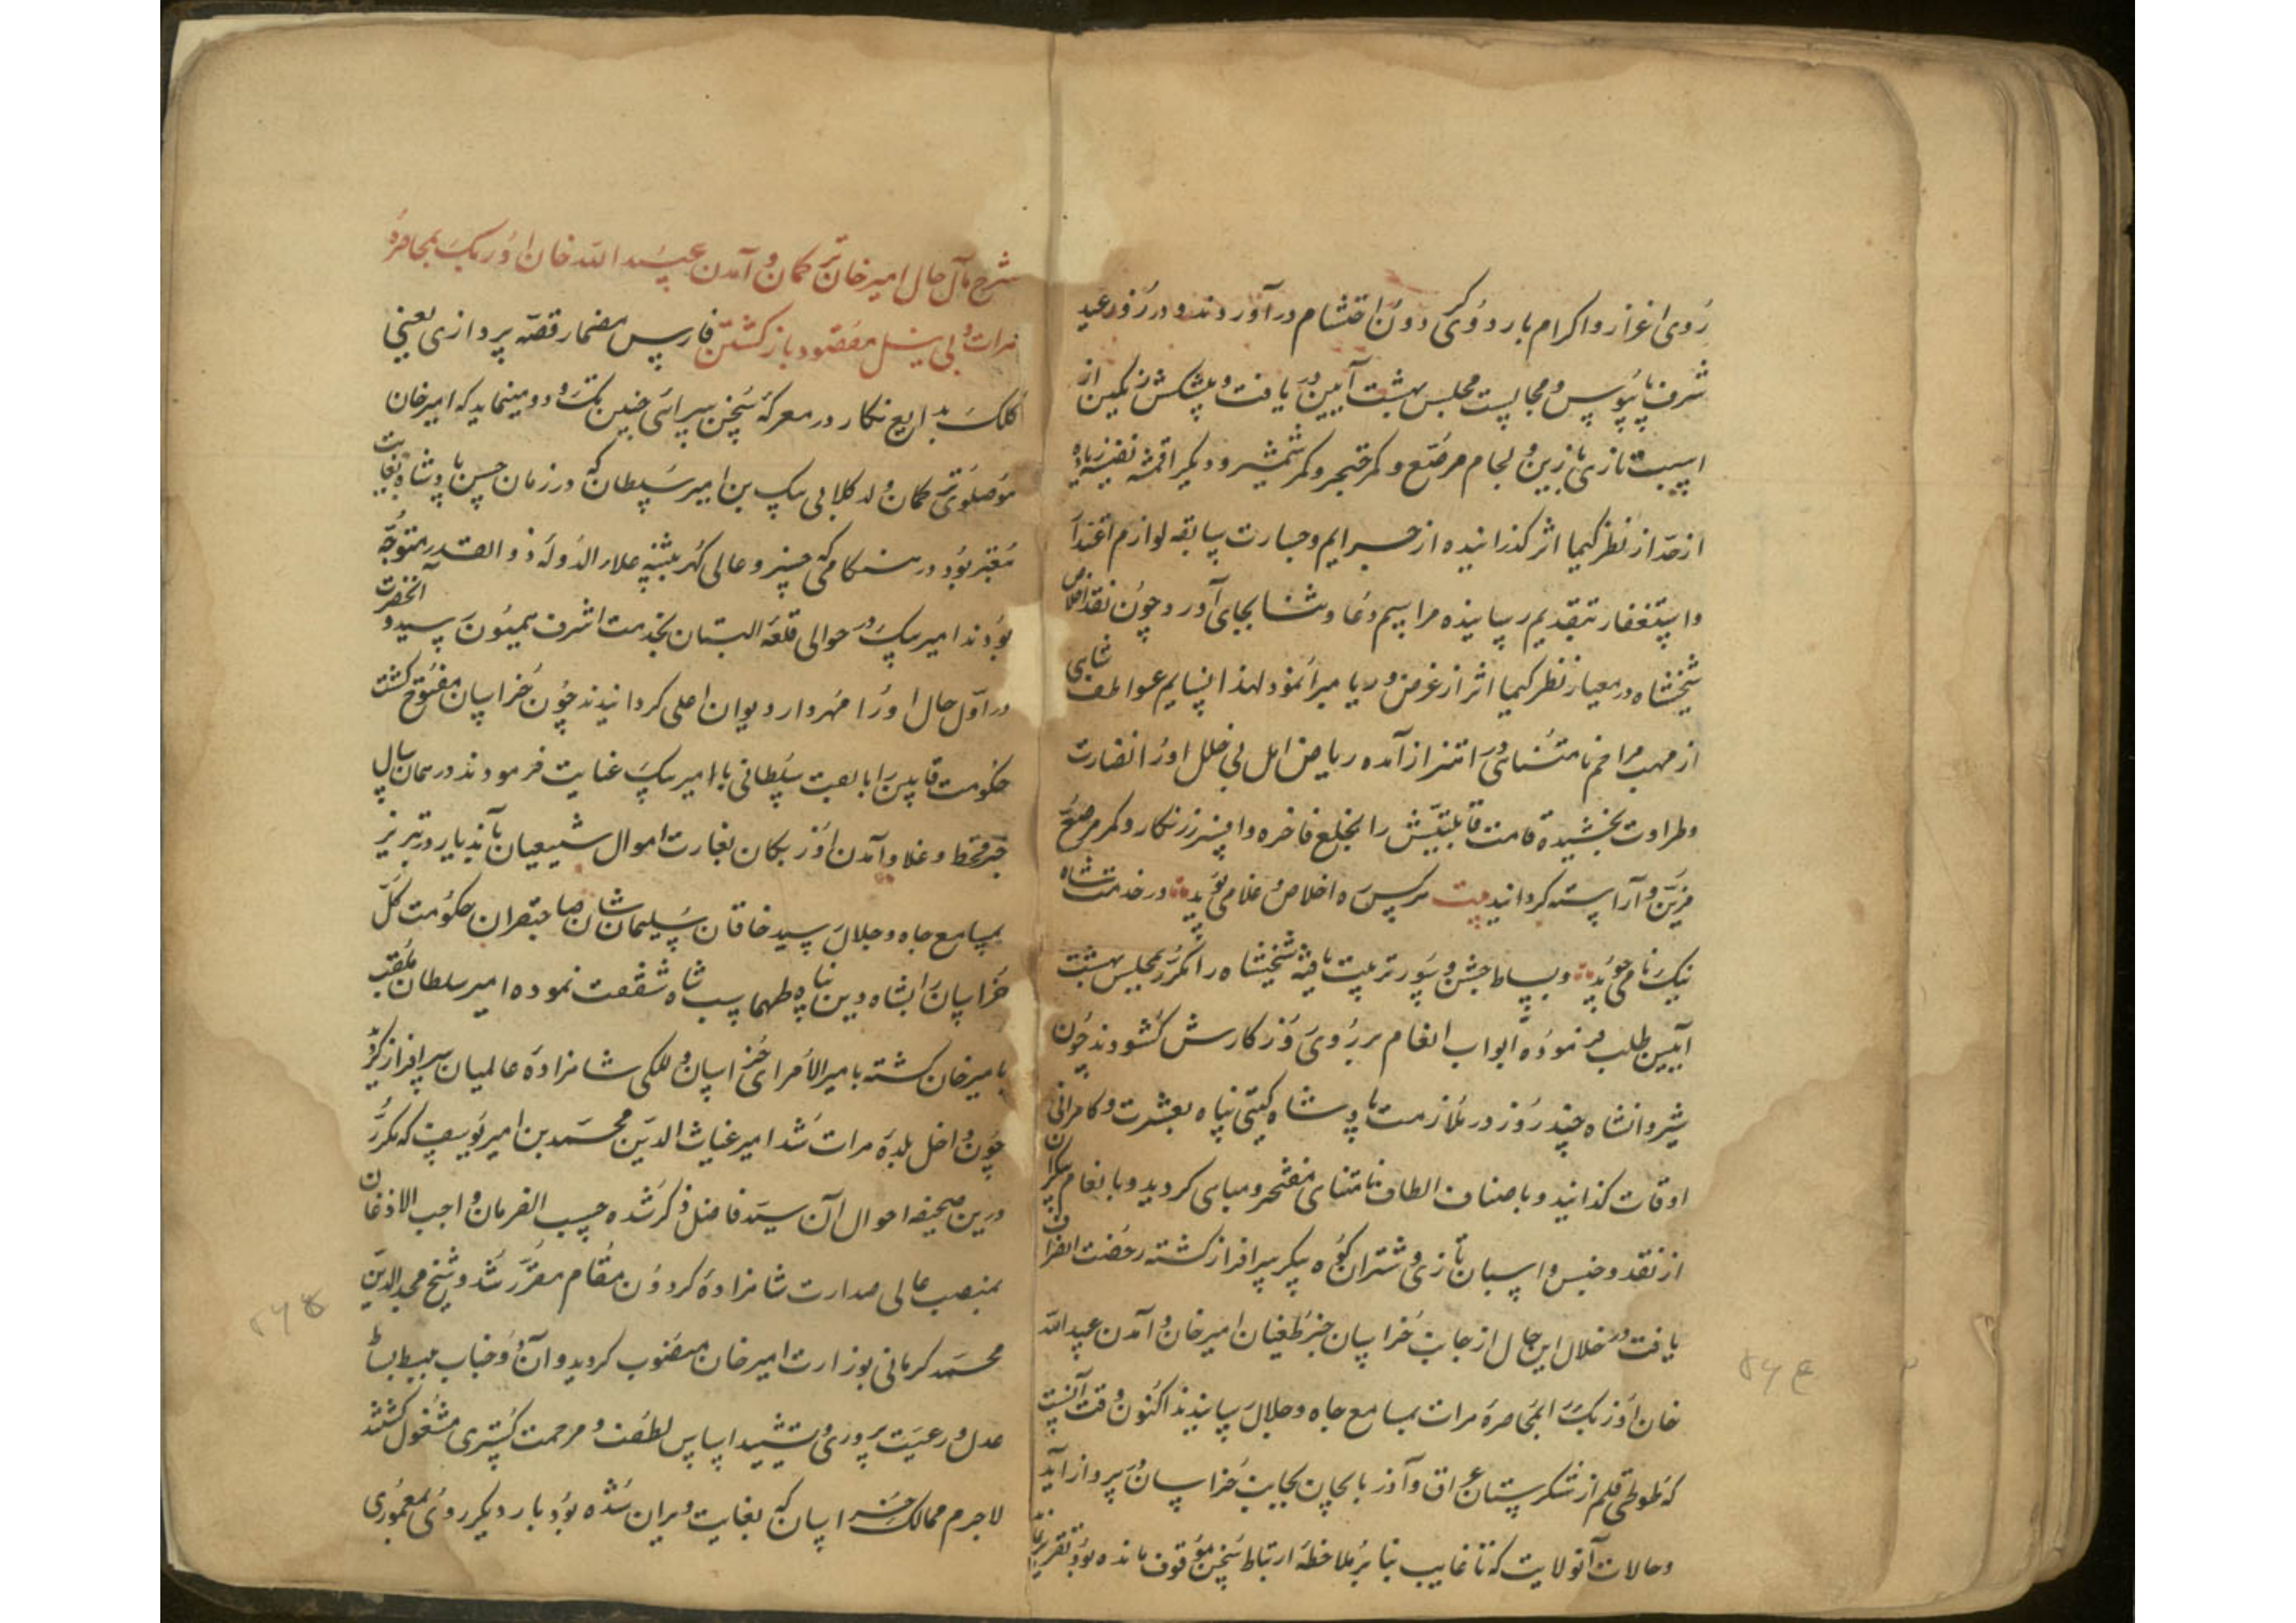 روی اعزاز و اکرام باردوی گردون احتشام درآوردند و در روز عید
شرف پابوس و مجالست مجلس بهشت آیین دریافت و پیشکش رنگین از
اسبت تازی با زین و لجام مرصع و کمر خنجر و کمر شمشیر و دیگر اقمشه نفیسه زیاده
از حد از نظر کیمیا اثر گذرانیده از جرایم و جسارت سابقه لوازم اعتذار
و استغفار بتقدیم رسانیده مراسم دعا و ثنا بجای آورد و چون نقد اخلاص
شیخشاه در معیار نظر کیمیا اثر از غرض و ریا مبرا نمود لهذا نسایم عواطف شاهی
از مهب مراحم نامتناهی در اهتزاز آمده ریاض امل بی خلل او را نضارت
و طراوت بخشیده قامت قابلیتش را بخلع فاخره و افسر زرنگار و کمر مرصع
مزین و آراسته گردانید بیت هرکس ره اخلاص و غلامی پوید در خدمت شاه
نیک نامی جوید و بساط جشن و سور ترتیب یافته شیخشاه را مکرر بمجلس بهشت
آیین طلب فرموده ابواب انعام بر روی روزگارش گشودند چون
شیروانشاه چند روز در ملازمت پادشاه گیتی پناه بعشرت و کامرانی
اوقات گذرانید و باصناف الطاف نامتناهی مفتخر و مباهی گردید و بانعام بیکران
از نقد و جنس و اسبان تازی و شتران کوه پیکر سرافراز گشته رخصت انصراف
یافت در خلال این حال از جانب خراسان خبر طغیان امیرخان و آمدن عبید الله
خان اوزبک را بمحاصره هرات بمسامع جاه و جلال رسانیدند اکنون وقت آنست
که طوطی قلم از شکرستان عراق و آذربایجان بجانب خراسان در پرواز آید
و حالات آنولایت که تا غایت بنا بر ملاحظه ارتباط سخن موقوف مانده بود بتقریر
شرح مآل حال امیرخان ترکمان و آمدن عبید الله خان اوزبک بمحاصره
هرات و بی نیل مقصود باز گشتن فارس مضمار قصه پردازی یعنی
کلک بدایع نگار در معرکه سخن سرائی چنین تک و دو مینماید که امیرخان
موصلوی ترکمان ولد کلابی بیک بن امیر سلطان که در زمان حسن پادشاه بغایت
معتبر بود در هنگامی که خسرو عالی گهر بتنبیه علاء الدوله ذو القدر متوجه
بودند امیر بیک در حوالی قلعه البستان بخدمت اشرف همیون رسید و آنحضرت
در اول حال او را مهردار دیوان اعلی گردانیدند چون خراسان مفتوح گشت
حکومت قاین را با لقب سلطانی با امیر بیک عنایت فرمودند در همان سال
خبر قحط و غلا و آمدن اوزبکان بغارت اموال شیعیان بآندیار در تبریز
بمسامع جاه و جلال رسید خاقان سلیمان شان صاحبقران حکومت کل
خراسان را بشاه دین پناه طهماسب شاه شفقت نموده امیر سلطان ملقب
بامیرخان گشته بامیر الامرای خراسان و للکی شاهزاده عالمیان سرافراز گردید
چون داخل بلده هرات شد امیر غیاث الدین محمد بن امیر یوسف که مکرر
درین صحیفه احوال آن سید فاضل ذکر شده حسب الفرمان واجب الاذعان
بمنصب عالی صدارت شاهزاده گردون مقام مقرر شد و شیخ مجد الدین
محمد کرمانی بوزارت امیرخان منصوب گردید و آن دو جناب ببسط بساط
عدل و رعیت پروری و تشیید اساس لطف و مرحمت گستری مشغول گشتند
لاجرم ممالک خراسان که بغایت ویران شده بود بار دیگر روی بمعموری